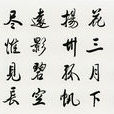 花三月下
揚州孤帆
遠影碧空
尽惟見長